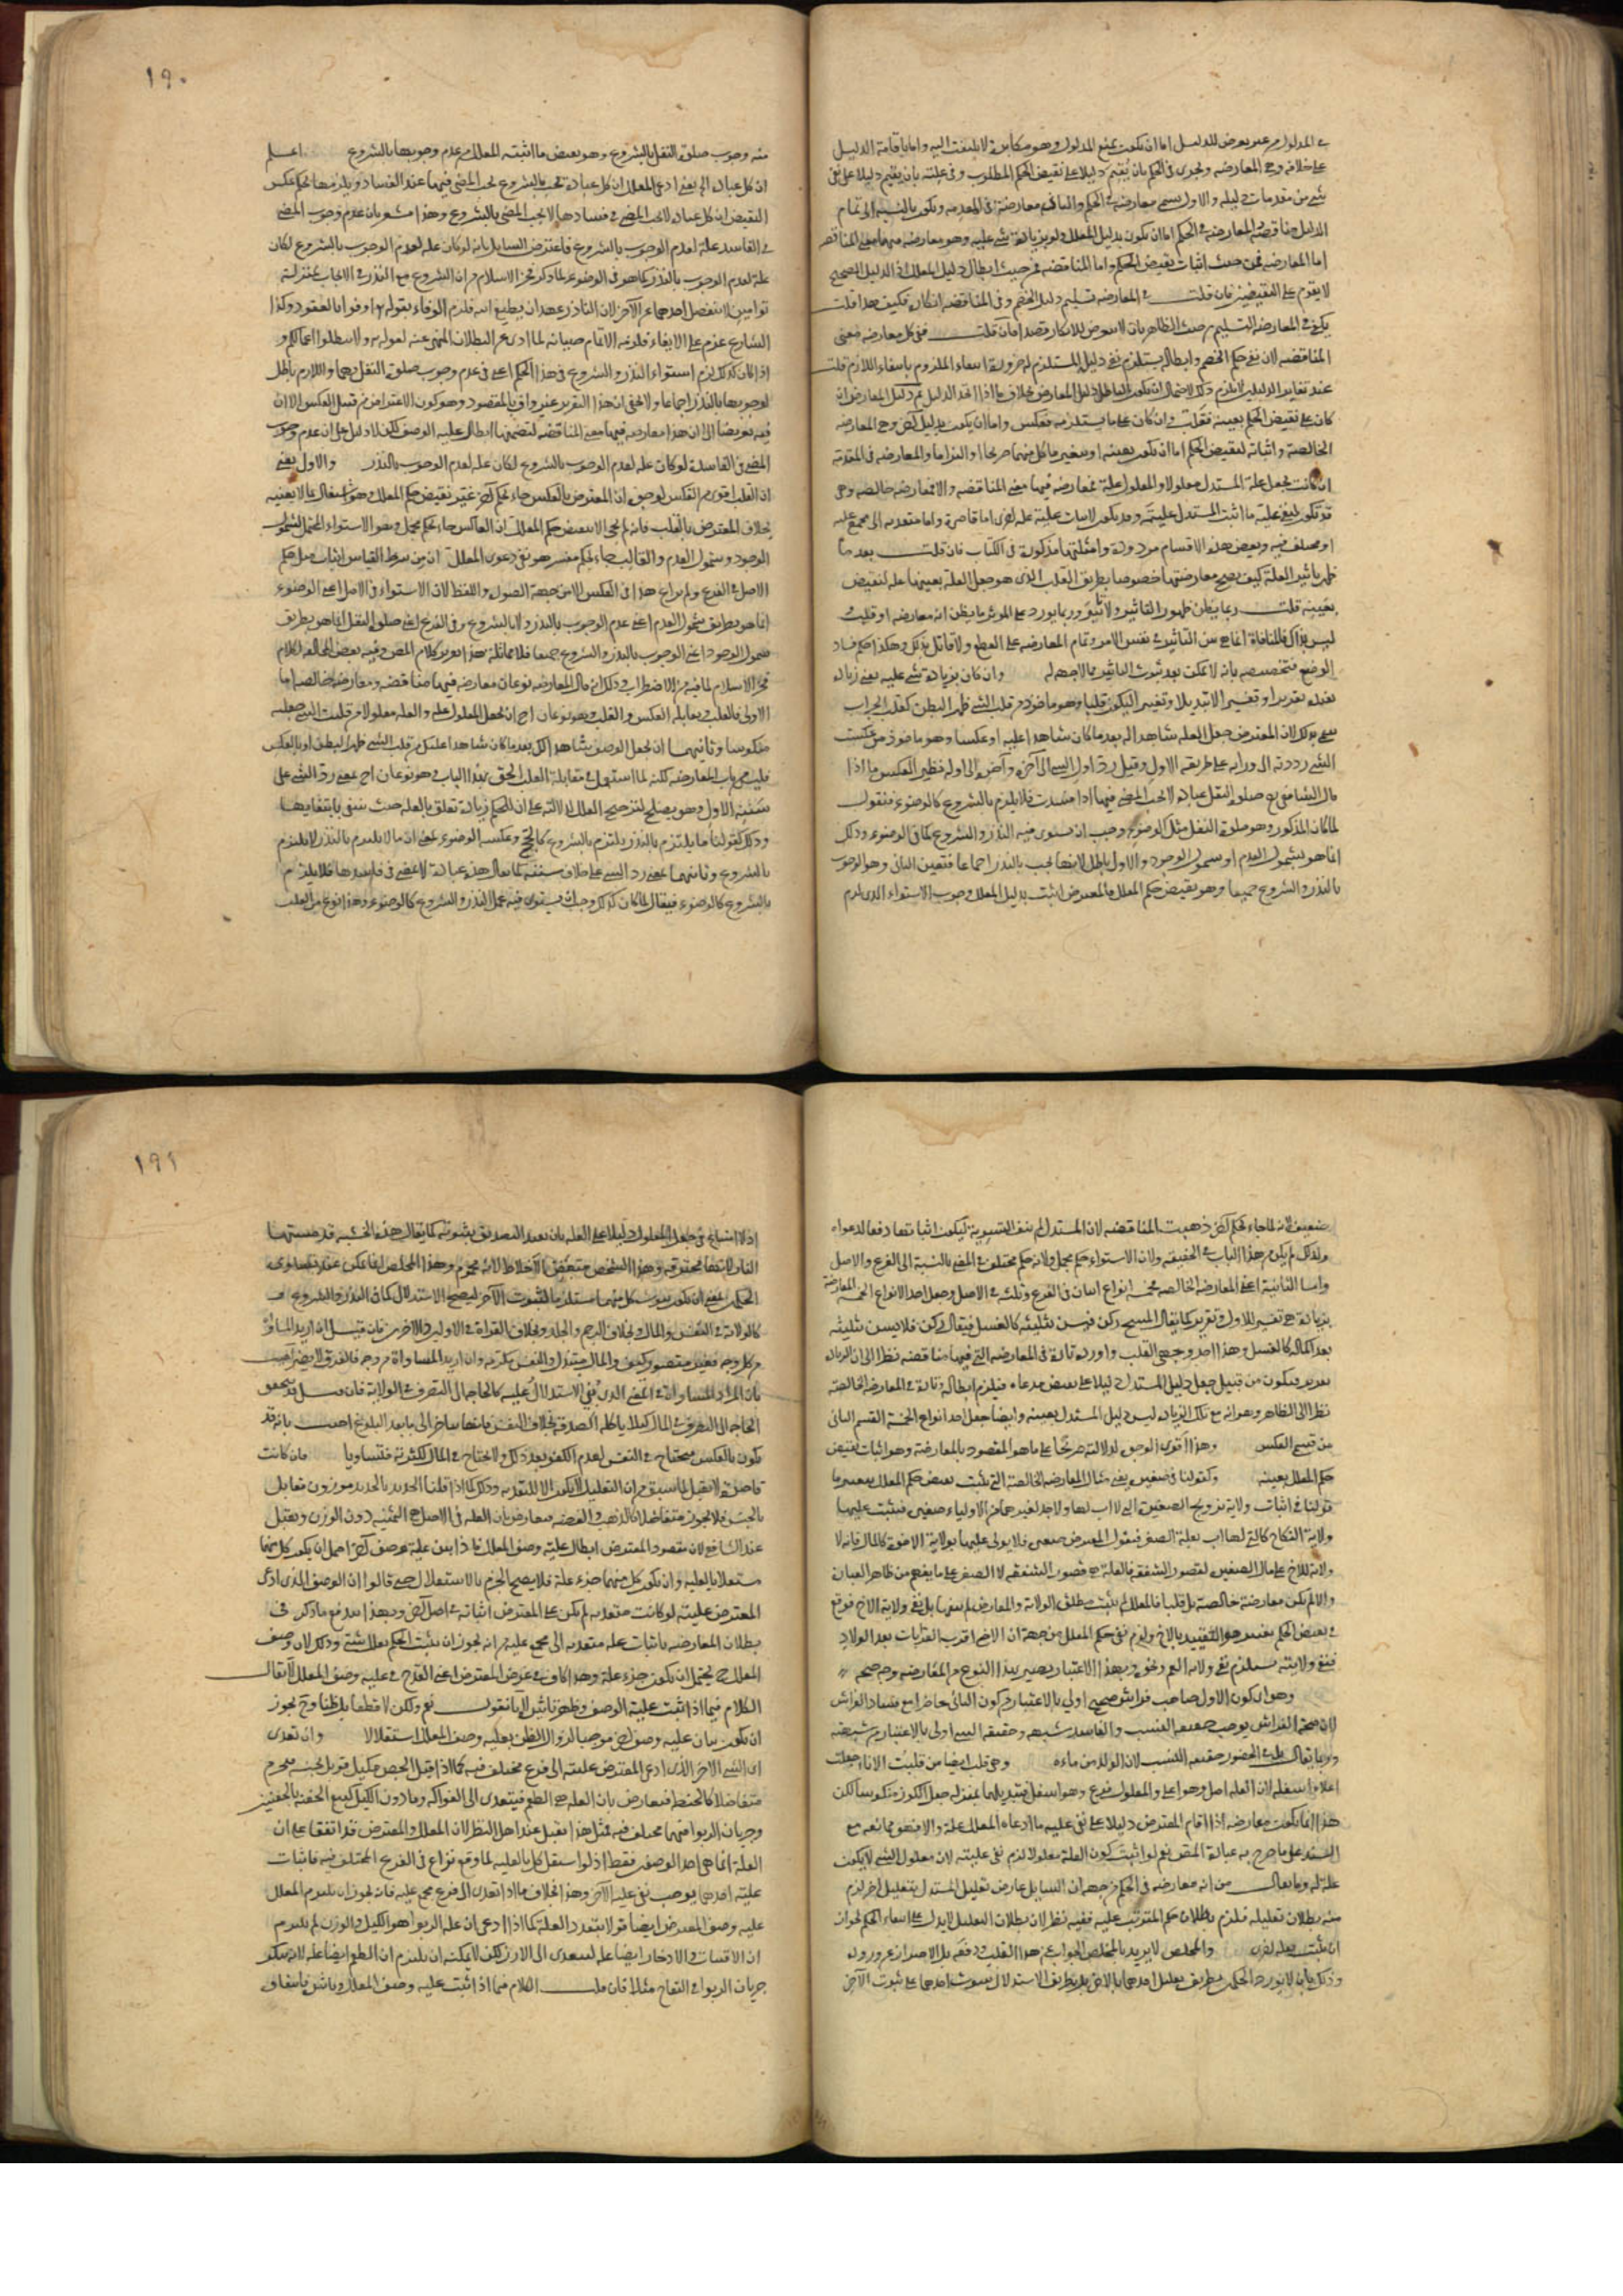 في المدلول من غير تعرض للدليل اما ان يكون بمنع المدلول وهو مكابرة لا يلتفت اليه واما باقامة الدليل
على خلافه وهي المعارضة وتجري في الحكم بان يقيم دليلا على نقيض الحكم المطلوب وفي علته بان يقيم دليلا على نفي
شيء من مقدمات دليله والاول يسمى معارضة في الحكم والثاني معارضة في المقدمة ويكون بالنسبة الى تمام
الدليل مناقضة والمعارضة في الحكم اما ان يكون بدليل المعلل ولو بزيادة شيء عليه وهو معارضة فيها معنى المناقضة
اما المعارضة فمن حيث اثبات نقيض الحكم واما المناقضة فمن حيث ابطال دليل المعلل اذ الدليل الصحيح
لا يقوم على النقيضين فان قلت في المعارضة تسليم دليل الخصم وفي المناقضة انكاره فكيف هذا قلت
يكفي في المعارضة التسليم من حيث الظاهر بان لا يتعرض للانكار قصدا فان قلت ففي كل معارضة معنى
المناقضة لان نفي حكم الخصم وابطاله يستلزم نفي دليله المستلزم له ضرورة انتفاء الملزوم بانتفاء اللازم قلت
عند تغاير الدليلين لا يلزم ذلك لاحتمال ان يكون الباطل دليل المعارض بخلاف ما اذا اتحد الدليل ثم دليل المعارض ان
كان على نقيض الحكم بعينه فقلب وان كان على ما يستلزمه فعكس واما ان يكون بدليل آخر وهي المعارضة
الخالصة واثباته لنقيض الحكم اما ان يكون بعينه او بتغيير ما كل منهما صريحا او التزاما والمعارضة في المقدمة
ان كانت بجعل علة المستدل معلولا والمعلول علة فمعارضة فيها معنى المناقضة والا فمعارضة خالصة وهي
قد تكون لنفي علية ما اثبت المستدل عليته وقد يكون لاثبات علية علة اخرى اما قاصرة واما متعدية الى مجمع عليه
او مختلف فيه وبعض هذه الاقسام مردودة وامثلتها مذكورة في الكتاب فان قلت بعد ما
ظهر تاثير العلة كيف يصح معارضتها خصوصا بطريق القلب الذي هو جعل العلة بعينها علة لنقيض
بعينه قلت ربما يظن ظهور التاثير ولا تاثير وربما يورد على المؤثر ما يظن انه معارضة او قلب و
ليس بذاك فالمنافاة انما هي بين التاثير في نفس الامر وتمام المعارضة على القطع ولا قائل بذلك وهكذا حكم فساد
الوضع فتخصيصه بانه لا يمكن بعد ثبوت التاثير مما لا جهة له وان كان بزيادة شيء عليه يعني زيادة
تفيد تقريرا وتفسيرا لا تبديلا وتغييرا ليكون قلبا وهو ماخوذ من قلب الشيء ظهر البطن كقلب الجراب
سمي بذلك لان المعترض جعل العلة شاهدا له بعد ما كان شاهدا عليه او عكسا وهو ماخوذ من عكست
الشيء رددته الى ورائه على طريقه الاول وقيل رد اول الشيء الى آخره وآخره الى اوله نظير العكس ما اذا
قال الشافعي رح صلوة النفل عبادة لا يجب المضي فيها اذا فسدت فلا يلزم بالشروع كالوضوء فنقول
لما كان المذكور وهو صلوة النفل مثل الوضوء وجب ان يستوي فيه النذر والشروع كما في الوضوء وذلك
اما هو بشمول العدم او شمول الوجود والاول باطل لانها تجب بالنذر اجماعا فتعين الثاني وهو الوجوب
بالنذر والشروع جميعا وهو نقيض حكم المعلل فالمعترض اثبت بدليل المعلل وجوب الاستواء الذي لزم
١٩٠
منه وجوب صلوة النفل بالشروع وهو نقيض ما اثبته المعلل من عدم وجوبها بالشروع اعلم
ان كل عبادة الخ يعني ادعى المعلل ان كل عبادة تجب بالشروع يجب المضي فيها عند الفساد ويلزمها بحكم عكس
النقيض ان كل عبادة لا يجب المضي في فسادها لا يجب المضي بالشروع وهذا مشعر بان عدم وجوب المضي
في الفاسد علة لعدم الوجوب بالشروع فاعترض السائل بانه لو كان علة لعدم الوجوب بالشروع لكان
علة لعدم الوجوب بالنذر كما هو في الوضوء لما ذكر فخر الاسلام من ان الشروع مع النذر في الايجاب بمنزلة
توامين لا ينفصل احدهما عن الآخر لان الناذر عهد ان يطيع الله فلزم الوفاء بقوله تع اوفوا بالعقود وكذا
الشارع عزم على الايفاء فلزمه الاتمام صيانة لما ادى عن البطلان المنهي عنه لقوله تع ولا تبطلوا اعمالكم و
اذا كان كذلك لزم استواء النذر والشروع في هذا الحكم اعني في عدم وجوب صلوة النفل بهما واللازم باطل
لوجوبها بالنذر اجماعا ولا يخفى ان هذا التقرير غير واف بالمقصود وهو كون الاعتراض من قبيل العكس الا ان
فيه تعريضا الى ان هذا معارضة فيها معنى المناقضة لتضمنها ابطال علية الوصف لكن لا دليل على ان عدم وجوب
المضي في الفاسد لو كان علة لعدم الوجوب بالشروع لكان علة لعدم الوجوب بالنذر والاول يعني
ان القلب اقوى من العكس لوجوه ان المعترض بالعكس جاء بحكم آخر غير نقيض حكم المعلل وهو اشتغال بما لا يعنيه
بخلاف المعترض بالقلب فانه لم يجئ الا بنقيض حكم المعلل ان العاكس جاء بحكم مجمل وهو الاستواء المحتمل لشمول
الوجود وشمول العدم والقالب جاء بحكم مفسر هو نفي دعوى المعلل ان من شرط القياس اثبات مثل حكم
الاصل في الفرع ولم يراع هذا في العكس الا من جهة الصورة واللفظ لان الاستواء في الاصل اعني الوضوء
انما هو بطريق شمول العدم اعني عدم الوجوب بالنذر ولا بالشروع وفي الفرع اعني صلوة النفل انما هو بطريق
شمول الوجود اعني الوجوب بالنذر والشروع جميعا فلا مماثلة هذا تقرير كلام المص وفيه بعض المخالفة لكلام
فخر الاسلام لما فيه من الاضطراب وذلك انه قال المعارضة نوعان معارضة فيها مناقضة ومعارضة خالصة اما
الاولى فالقلب ويقابله العكس والقلب وهو نوعان احدهما ان يجعل المعلول علة والعلة معلولا من قلبت الشيء جعلته
منكوسا وثانيهما ان يجعل الوصف شاهدا لك بعد ما كان شاهدا عليك من قلب الشيء ظهر البطن اما العكس
فليس من باب المعارضة لكنه لما استعمل في مقابلة القلب الحق بهذا الباب وهو نوعان احدهما بمعنى رد الشيء على
سننه الاول وهو يصلح لترجيح العلل لدلالته على ان للحكم زيادة تعلق بالعلة حيث ينتفي بانتفائها
وذلك كقولنا ما يلتزم بالنذر يلتزم بالشروع كالحج وعكسه الوضوء يعني ان ما لا يلتزم بالنذر لا يلتزم
بالشروع وثانيهما بمعنى رد الشيء على خلاف سننه كما يقال هذه عبادة لا يمضي في فاسدها فلا يلتزم
بالشروع كالوضوء فيقال لما كان كذلك وجب ان يستوي فيه عمل النذر والشروع كالوضوء وهذا نوع من القلب
ضعيف لانه لما جاء بحكم آخر ذهبت المناقضة لان المستدل لم ينف التسوية ليكون اثباتها دفعا لدعواه
ولذلك لم يكن من هذا الباب في الحقيقة ولان الاستواء حكم مجمل ولانه حكم مختلف في المعنى بالنسبة الى الفرع والاصل
واما الثانية اعني المعارضة الخالصة فخمسة انواع اثنان في الفرع وثلثة في الاصل وجعل احد الانواع الخمسة المعارضة
بزيادة هي تفسير للاول وتقرير كما يقال المسح ركن فيسن تثليثه كالغسل فيقال ركن فلا يسن تثليثه
بعد اكماله كالغسل وهذا احد وجهي القلب واورده تارة في المعارضة التي فيها مناقضة نظرا الى ان الزيادة
تقرير فيكون من قبيل جعل دليل المستدل دليلا على نقيض مدعاه فيلزم ابطاله وتارة في المعارضة الخالصة
نظرا الى الظاهر وهو انه مع تلك الزيادة ليس دليل المستدل بعينه وايضا جعل احد انواع الخمسة القسم الثاني
من قسمي العكس وهذا اقوى الوجوه لدلالته صريحا على ما هو المقصود بالمعارضة وهو اثبات نقيض
حكم المعلل بعينه وكقولنا في صغيرة يعني مثال المعارضة الخالصة التي تثبت نقيض حكم المعلل بتغيير ما
قولنا في اثبات ولاية تزويج الصغيرة التي لا اب لها ولا جد لغيرهما من الاولياء صغيرة فيثبت عليها
ولاية النكاح كالتي لها اب بعلة الصغر فيقول المعترض صغيرة فلا يولى عليها بولاية الاخوة كالمال فانه لا
ولاية للاخ على مال الصغيرة لقصور الشفقة فالعلة هي قصور الشفقة لا الصغر على ما يفهم من ظاهر العبارة
والا لم يكن معارضة خالصة بل قلبا فالمعلل اثبت مطلق الولاية والمعارض لم ينفها بل نفى ولاية الاخ فوقع
في نقيض الحكم تغيير هو التقييد بالاخ ولزم نفي حكم المعلل من جهة ان الاخ اقرب القرابات بعد الولاد
فنفي ولايته يستلزم نفي ولاية العم ونحوه وبهذا الاعتبار يصير لهذا النوع من المعارضة وجه صحة
وهو ان يكون الاول صاحب فراش صحيح اولى بالاعتبار من كون الثاني حاضرا مع فساد الفراش
لان صحة الفراش يوجب حقيقة النسب والفاسد شبهه وحقيقة الشيء اولى بالاعتبار من شبهته
وربما يقال بل في الحضور حقيقة النسب لان الولد من ماءه وهي قلب ايضا من قلبت الاناء جعلت
اعلاه اسفله لان العلة اصل وهو اعلى والمعلول فرع وهو اسفل فتبديلهما بمنزلة جعل الكوز منكوسا لكن
هذا انما يكون معارضة اذا اقام المعترض دليلا على نفي علية ما ادعاه المعلل علة والا فهو ممانعة مع
السند على ما صرح به عبارة المص نعم لو اثبت كون العلة معلولا لزم نفي عليته لان معلول الشيء لا يكون
علة له وما يقال من انه معارضة في الحكم من جهة ان السائل عارض تعليل المستدل بتعليل آخر لزم
منه بطلان تعليله فلزم بطلان حكم المترتب عليه ففيه نظر لان بطلان التعليل لا يدل على انتفاء الحكم لجواز
ان يثبت بعلة اخرى والمخلص لا يريد بالمخلص الجواب عن هذا القلب ودفعه بل الاحتراز عن وروده
وذلك بان لا يورد الحكمين بطريق تعليل احدهما بالآخر بل بطريق الاستدلال بثبوت احدهما على ثبوت الآخر
١٩١
اذ لا امتناع في جعل المعلول دليلا على العلة بان يفيد التصديق بثبوته كما يقال هذه الخشبة قد مستها
النار لانها محترقة وهذا الشخص متعفن الاخلاط لانه محموم وهذا المخلص انما يمكن عند تساوي
الحكمين بمعنى ان يكون ثبوت كل منهما مستلزما لثبوت الآخر ليصح الاستدلال كما في النذر والشروع و
كالولاية في النفس والمال وبخلاف الرجم والجلد وبخلاف القراءة في الاوليين والاخريين فان قيل ان اريد المساواة
من كل وجه فغير متصور كيف والمال مبتذل والنفس مكرمة وان اريد المساواة من وجه فالفرق لا يضر اجيب
بان المراد المساواة في المعنى الذي بني الاستدلال عليه كالحاجة الى التصرف في الولاية فان قيل قد يتحقق
الحاجة الى التصرف في المال كيلا ياكله الصدقة بخلاف النفس فانها يتاخر الى ما بعد البلوغ اجيب بانه قد
يكون بالعكس فيحتاج في النفس لعدم الكفو بعد ذلك ولا يحتاج في المال لكثرته فتساويا فان كانت
قاصرة لا يقبل لما سبق من ان التعليل لا يكون الا للتعدية وذلك كما اذا قلنا الحديد بالحديد موزون مقابل
بالجنس فلا يجوز متفاضلا كالذهب والفضة فيعارض بان العلة في الاصل هي الثمنية دون الوزن ويقبل
عند الشافعي لان مقصود المعترض ابطال علية وصف المعلل فاذا بين علية وصف آخر احتمل ان يكون كل منهما
مستقلا بالعلية وان يكون كل منهما جزء علة فلا يصح الجزم بالاستقلال حتى قالوا ان الوصف الذي ادعى
المعترض عليته لو كانت متعدية لم يكن على المعترض اثباته في اصل آخر وبهذا يندفع ما ذكر في
بطلان المعارضة باثبات علة متعدية الى مجمع عليه من انه يجوز ان يثبت الحكم بعلل شتى وذلك لان وصف
المعلل ح يحتمل ان يكون جزء علة وهذا كاف في غرض المعترض اعني القدح في علية وصف المعلل لا يقال
الكلام فيما اذا ثبت علية الوصف وظهر تاثيره لانا نقول نعم ولكن لا قطعا بل ظنا وح يجوز
ان يكون بيان علية وصف آخر موجبا لزوال الظن بعلية وصف المعلل استقلالا وان تعدى
اي الشيء الآخر الذي ادعى المعترض عليته الى فرع مختلف فيه كما اذا قيل الجص مكيل قوبل بجنسه فيحرم
متفاضلا كالحنطة فيعارض بان العلة هي الطعم فيتعدى الى الفواكه وما دون الكيل كبيع الحفنة بالحفنتين
وجريان الربوا فيهما مختلف فيه فمثل هذا يقبل عند اهل النظر لان المعلل والمعترض قد اتفقا على ان
العلة انما هي احد الوصفين فقط اذ لو استقل كل بالعلية لما وقع نزاع في الفرع المختلف فيه فاثبات
علية احدهما يوجب نفي علية الآخر وهذا بخلاف ما اذا تعدى الى فرع مجمع عليه فانه يجوز ان يلتزم المعلل
علية وصف المعترض ايضا قولا بتعدد العلة كما اذا ادعى ان علة الربوا هو الكيل والوزن ثم يلتزم
ان الاقتيات والادخار ايضا علة ليتعدى الى الارز لكن لا يمكنه ان يلتزم ان الطعم ايضا علة لانه ينكر
جريان الربوا في التفاح مثلا فان قلت الكلام فيما اذا ثبت علية وصف المعلل وتاثيره باتفاق